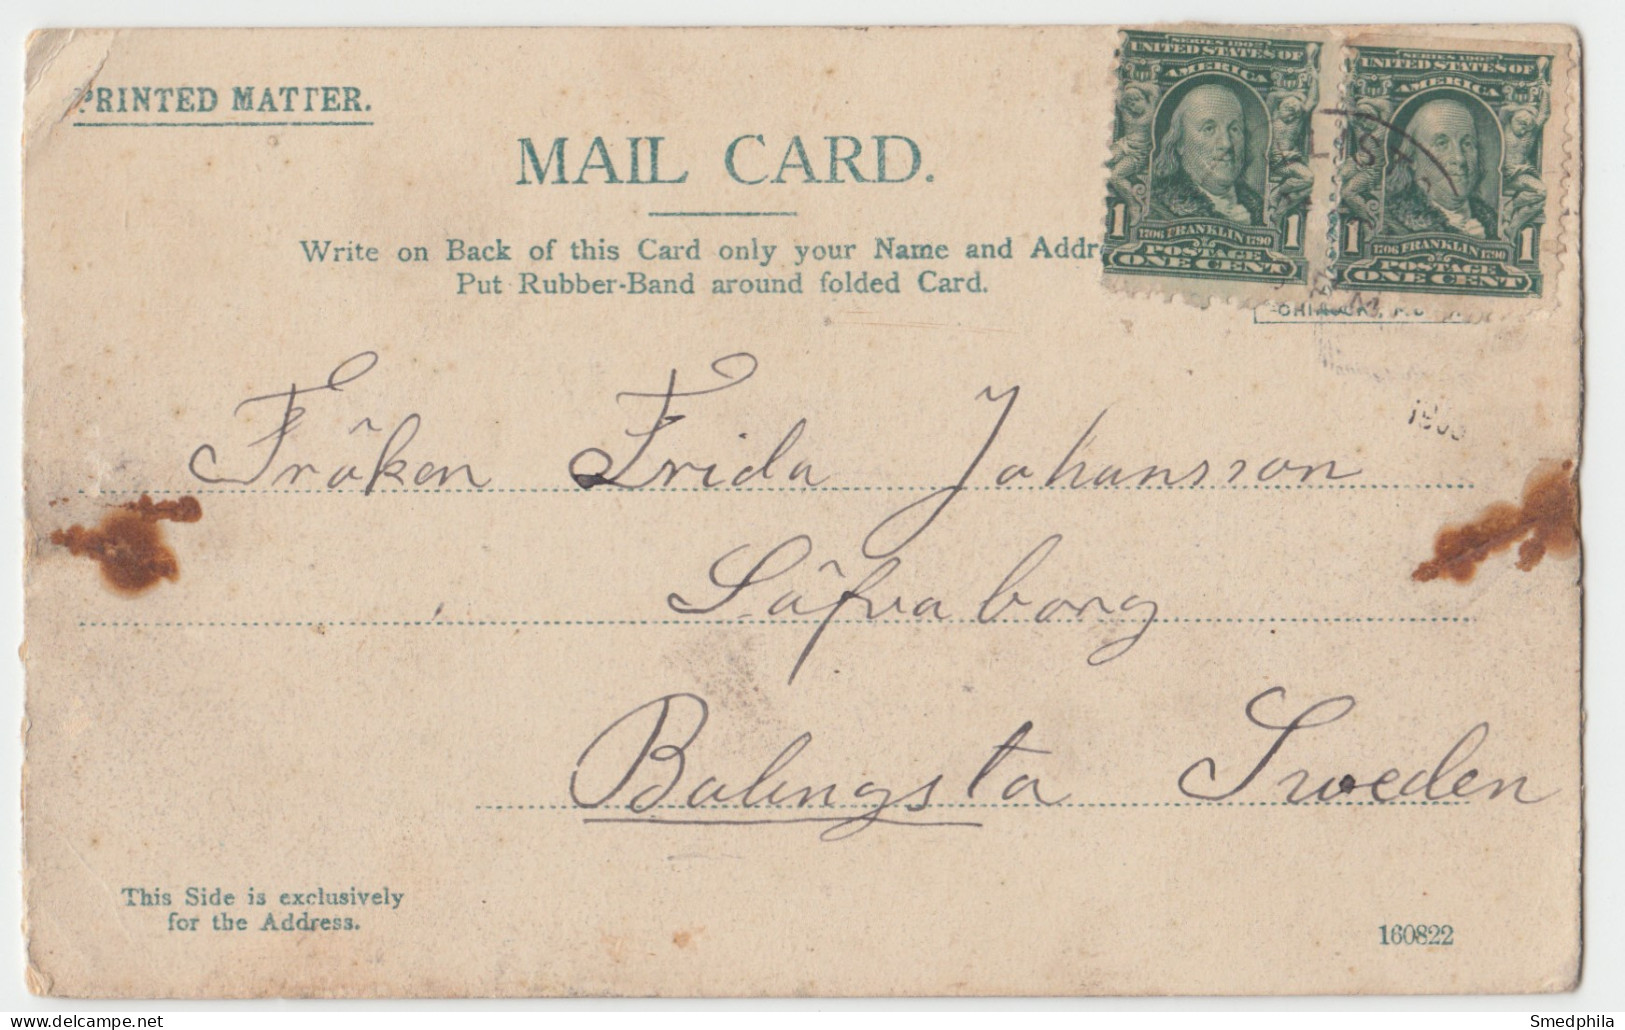 PRINTED MATTER.
MAIL CARD.
Write on Back of this Card only your Name and Addr
Put Rubber-Band around folded Card.
SERIES 1902
UNITED STATES OF
AMERICA
1 1
1706 FRANKLIN 1790
POSTAGE
ONE CENT
SERIES 1902
UNITED STATES OF
AMERICA
1 1
1706 FRANKLIN 1790
POSTAGE
ONE CENT
Fröken Frida Johansson
Söfvaborg
Balingsta Sweden
This Side is exclusively
for the Address.
160822
Smedphila